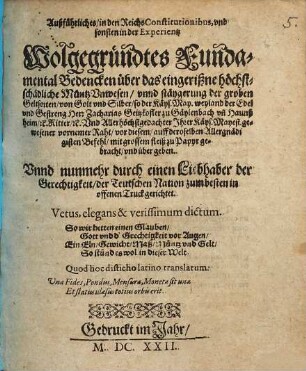 Außführliches/ in den Reichs Constitutionibus, vnd
sonsten in der Experientz
Wolgegründtes Funda-
mental Bedencken über das eingerißne höchst-
schädliche Müntz Vnwesen/ vnnd stäygerung der groben
Geltsorten/ von Gott vnd Silber/ so der Käys. May. weyland der Edel
vnd Gestreng Herr Zacharias Geitzkofler zu Gäylenbach vñ Haunß-
heim/ ꝛc. Ritter/ ꝛc. Vnd Allerhöchstgedachter Ihrer Käys. Mayest. ge-
wesener vornemer Raht/ vor diesem/ auff deroselben Allergnädi-
gisten Befehl/ mit grossem fleiß zu Papyr ge-
bracht/ vnd über geben.
Vnnd nunmehr durch einen Liebhaber der
Gerechtigkeit/ der Teutschen Nation zum besten in
offenen Truck gerichtet.
Vetus, elegans & verissimum dictum.
So wir hetten einen Glauben/
Gott vnd d' Gerechtigkeit vor Augen/
Ein Eln/ Gewicht/ Maß/ Müntz vnd Gelt/
So stünd es wol in dieser Welt.
Quod hoc disticho latino translatum.
Una Fides, Pondus, Mensura, Moneta sit una
Et status illæsus totius orbis erit.
Gedruckt im Jahr/
M. DC. XXII.